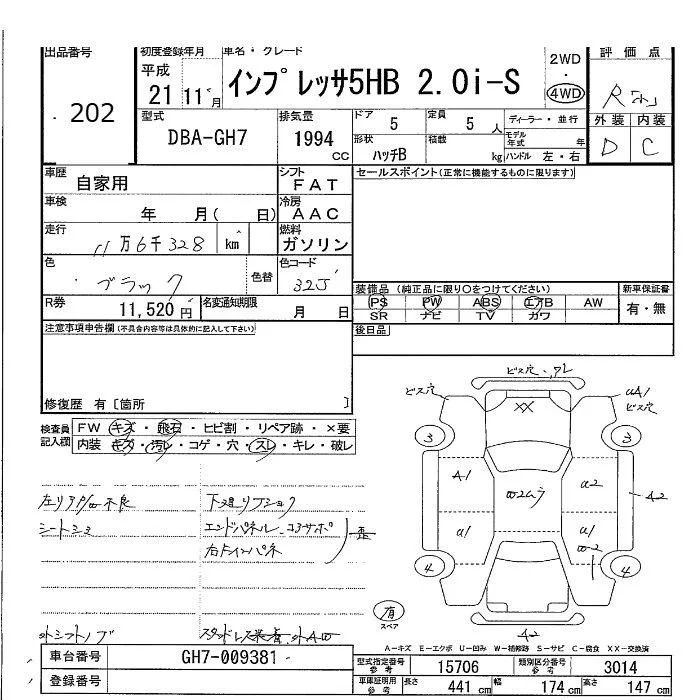 出品番号
202
初度登録年月
平成
21年 11月
車名・グレード
インプレッサ5HB 2.0i-S
2WD
・
4WD
評価点
R
外装 内装
D C
型式
DBA-GH7
排気量
1994 CC
ドア
5
定員
5 人
形状
ハッチB
積載
kg
ディーラー・並行
モデル年式 年
ハンドル 左・右
車歴
自家用
シフト
FAT
車検
年 月( 日)
冷房
AAC
走行
11万6千328 km
燃料
ガソリン
色
ブラック
色替
色コード
32J
R券
11,520円
名変通知期限
月 日
セールスポイント(正常に機能するものに限ります)
装備品 (純正品に限り○をつけてください)
PS PW ABS エアB AW
SR ナビ TV カワ
新車保証書
有・無
後日品
注意事項申告欄(不具合内容等は具体的に記入して下さい)
修復歴 有[箇所 ]
検査員記入欄
FW キズ・飛石・ヒビ割・リペア跡・×要
内装 キズ・汚レ・コゲ・穴・スレ・キレ・破レ
シートシミ
エンドパネル
外シフトノブ
ビス穴
ビス穴
UA1
ビス穴
XX
3
3
A1
W2ムラ
U2
A2
U1
U1
W2
4
4
A2
有
スペア
A-キズ E-エクボ U-凹み W-補修跡 S-サビ C-腐食 XX-交換済
車台番号
GH7-009381
登録番号
型式指定番号 参考
15706
類別区分番号 参考
3014
車庫証明用 参考
長さ 441 cm
幅 174 cm
高さ 147 cm